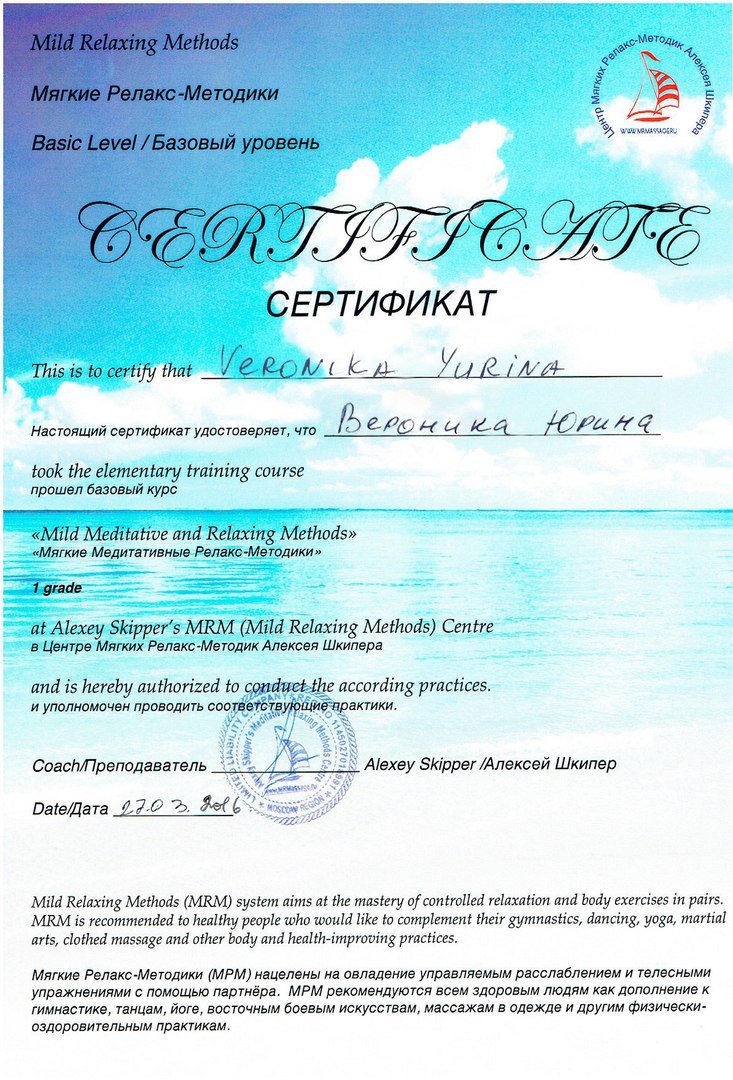 Mild Relaxing Methods
Мягкие Релакс-Методики
Basic Level / Базовый уровень
Центр Мягких Релакс-Методик Алексея Шкипера
WWW.MRMASSAGE.RU
CERTIFICATE
СЕРТИФИКАТ
This is to certify that VERONIKA YURINA
Настоящий сертификат удостоверяет, что Вероника Юрина
took the elementary training course
прошел базовый курс
«Mild Meditative and Relaxing Methods»
«Мягкие Медитативные Релакс-Методики»
1 grade
at Alexey Skipper's MRM (Mild Relaxing Methods) Centre
в Центре Мягких Релакс-Методик Алексея Шкипера
and is hereby authorized to conduct the according practices.
и уполномочен проводить соответствующие практики.
LIMITED LIABILITY COMPANY
MOSCOW REGION
Alexey Skipper's Meditative Relaxing Methods Centre
WWW.MRMASSAGE.RU
Coach/Преподаватель Alexey Skipper /Алексей Шкипер
Date/Дата 27.03.2016
Mild Relaxing Methods (MRM) system aims at the mastery of controlled relaxation and body exercises in pairs.
MRM is recommended to healthy people who would like to complement their gymnastics, dancing, yoga, martial
arts, clothed massage and other body and health-improving practices.
Мягкие Релакс-Методики (МРМ) нацелены на овладение управляемым расслаблением и телесными
упражнениями с помощью партнёра. МРМ рекомендуются всем здоровым людям как дополнение к
гимнастике, танцам, йоге, восточным боевым искусствам, массажам в одежде и другим физически-
оздоровительным практикам.